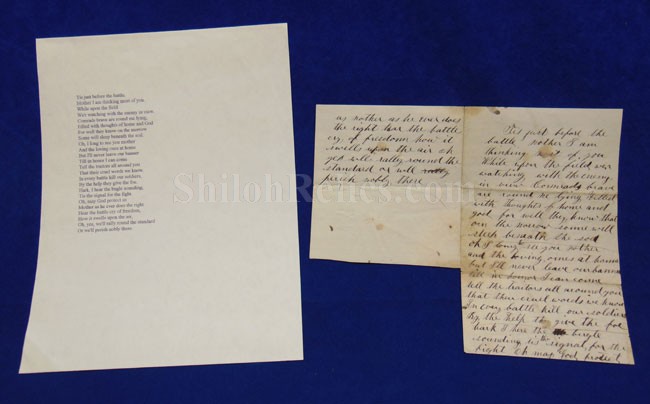 Tis just before the battle,
Mother I am thinking most of you,
While upon the field
We're watching with the enemy in view.
Comrads brave are round me lying,
Filled with thoughts of home and God
For well they know on the morrow
Some will sleep beneath the sod.
Oh, I long to see you mother
And the loving ones at home
But I'll never leave our banner
Till in honor I can come.
Tell the traitors all around you
That their cruel words we know
In every battle kill our soldiers,
By the help they give the foe.
Hark, I hear the bugle sounding,
Tis the signal for the fight.
Oh, may God protect us
Mother as he ever does the right.
Hear the battle cry of freedom,
How it swells upon the air.
Oh, yes, we'll rally round the standard
Or we'll perish nobly there.
ShilohRelics.com
as mother as he ever does
the right hear the battle
cry of freedom how it
swells upon the air oh
yes will rally round the
standard or will
perish nobly there
Tis just before the
battle mother I am
thinking of you
While upon the field we
watching with the enemy
in view Comrads brave
are round me lying filled
with thoughts of home and
god for well they know that
on the morrow some will
sleep beneath the sod
oh I long to see you mother
and the loving ones at home
but I'll never leave our banner
till in honor I can come
tell the traitors all around you
that their cruel words we know
in every battle kill our soldiers
By the help they give the foe
hark I hear the bugle
sounding tis the signal for the
fight Oh may God protect